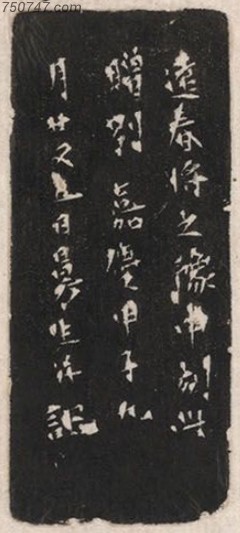 750747.com
遠春將之豫中刻此
贈別 嘉慶甲子九
月廿又五日曼生 記